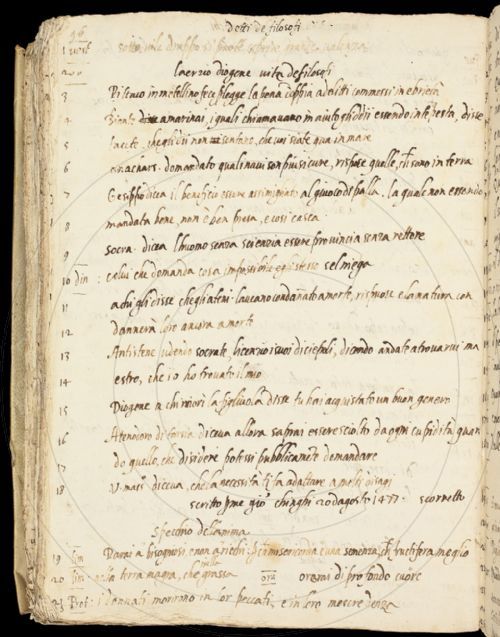 detti de filosofi
46
1 sotto vile drappo si
2 laertio diogene vita de filosofi
3 Pittaco in metellino fece legge la pena doppia a delitti commessi in ebrietà
4 Biante a marinai, i quali chiamavano in aiuto gli dii essendo in tempesta, disse
5 tacete, che gli dii non sentano, che voi siate qua in mare
6 anacharsi domandato quali navi son più sicure, rispose quelle, che sono in terra
7 Gesippo dicea il beneficio essere assimigliato al giuoco di palla. la qual non essendo
8 mandata bene, non è ben presa, e così casca
9 socra. dicea l'huomo senza scienzia essere provincia senza rettore
10 din : colui che domanda cosa impossibile egli stesso se l niega
11 a chi gli disse che gli ateni. l'aveano condannato a morte, rispuose e la natura con
12 dannerà loro ancora a morte
13 Antistene udendo socrate, licenziò i suoi discepoli, dicendo andate a trovarvi ma
14 estro, che io ho trovato il mio
15 Diogene a chi la figliuola disse tu hai acquistato un buon genero
16 Atenodoro di diceva allora saprai essere sciolto da ogni cupidità quan
17 do quello, che dividere potessi pubblicamente domandare
18 diceva, che la necessità ti fa adattare a molti disagi
scritto per me gio chinghi 20 dagosto 1477. scornetto
specchio dell'anima
19 lim Darai a bisognosi, e non a ricchi: la misericordia è una semenza, che fructifera meglio
20 lim nella terra magra, che nella grassa ora orarai di profondo cuore
21 Prof: i dannati morirono in lor peccati, e in loro miscredenza